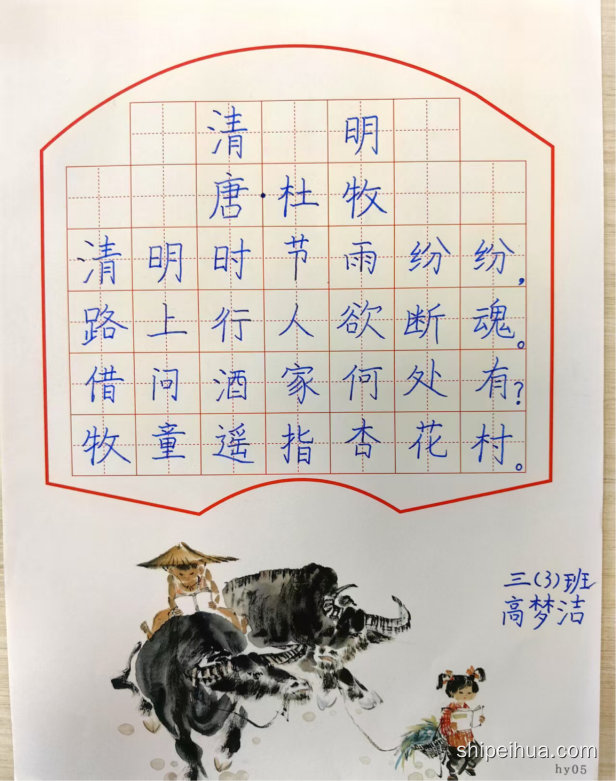 清 明
唐·杜牧
清明时节雨纷纷，
路上行人欲断魂。
借问酒家何处有？
牧童遥指杏花村。
三(3)班
高梦洁
shipeihua.com
hy05